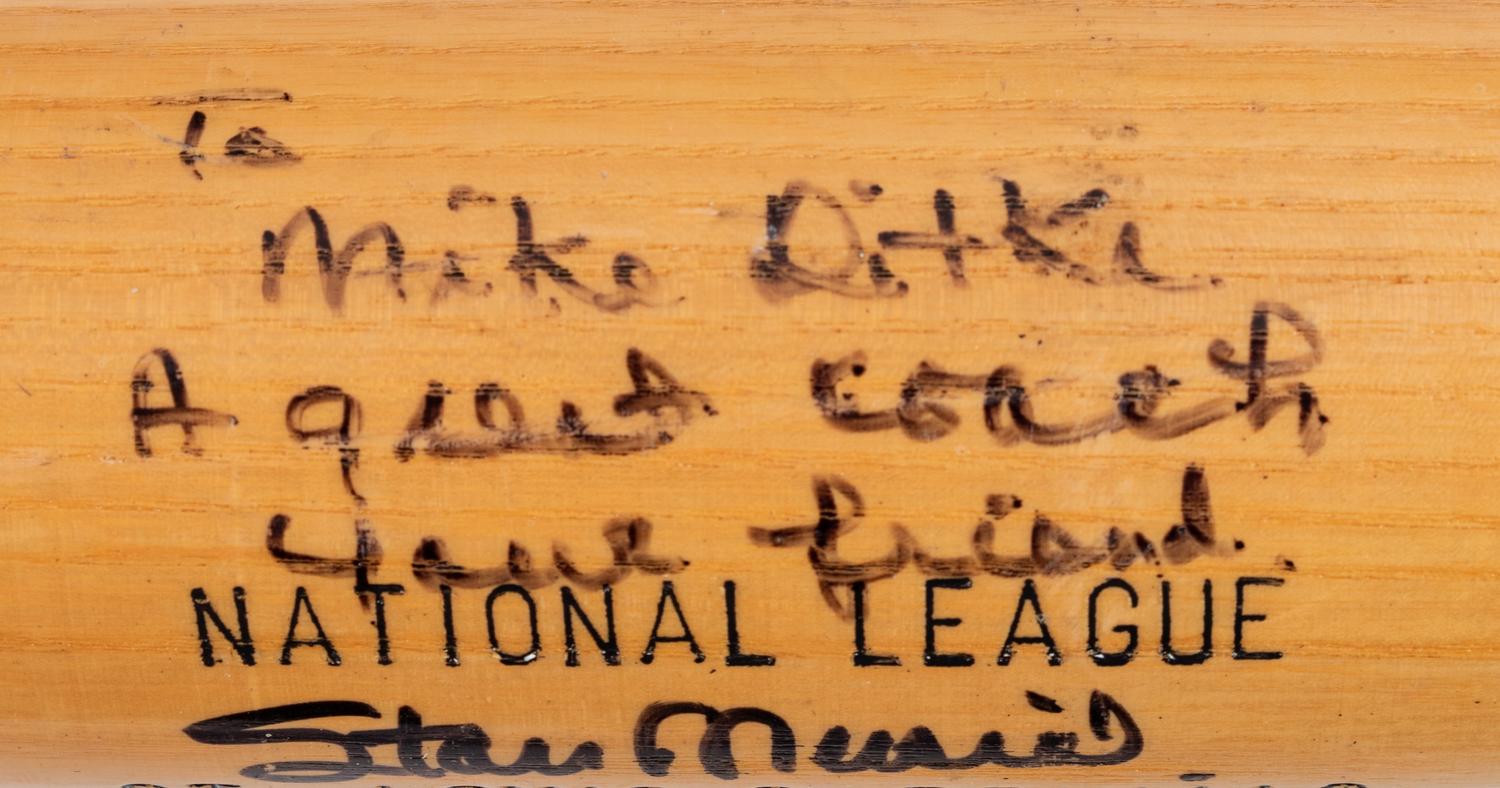 To
Mike Ditka
A great coach
Your friend
NATIONAL LEAGUE
Stan Musial